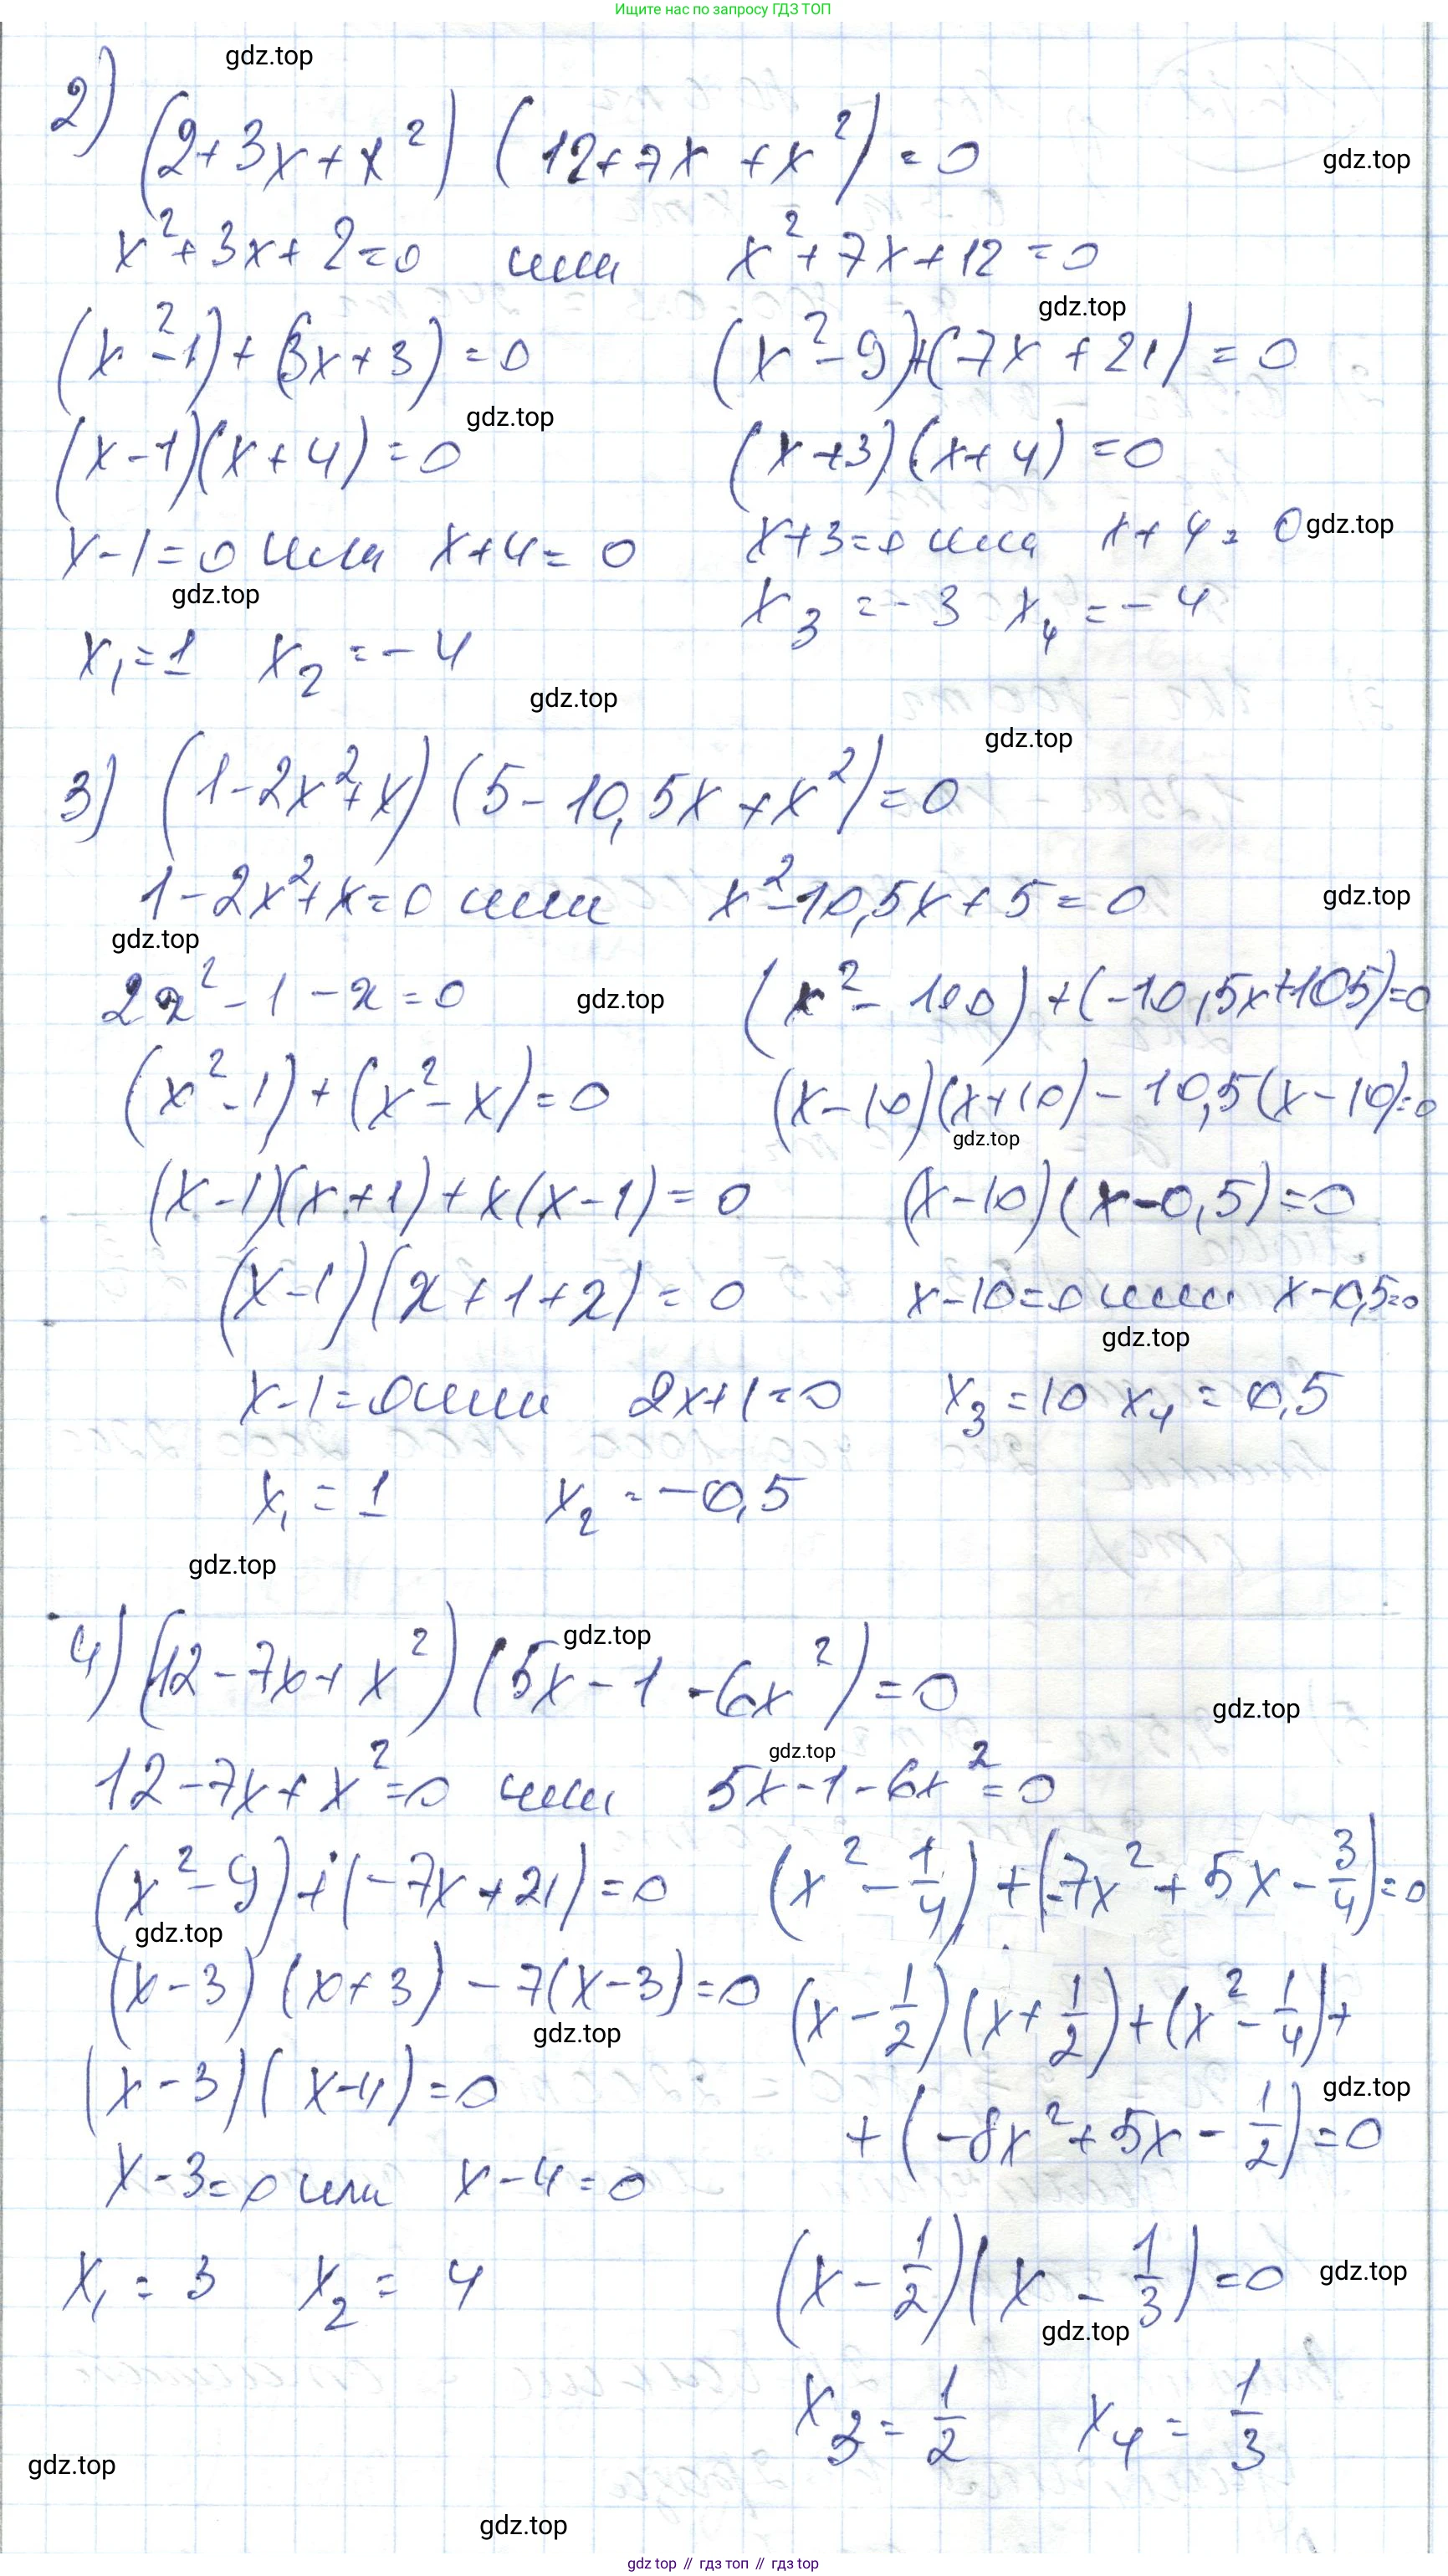 Ищите нас по запросу ГДЗ ТОП
gdz.top
2) (2+3x+x²) (12+7x+x²)=0
gdz.top
x²+3x+2=0 или x²+7x+12=0
gdz.top
(x²-1)+(3x+3)=0 (x²-9)+(-7x+21)=0
gdz.top
(x-1)(x+4)=0 (x+3)(x+4)=0
x-1=0 или x+4=0 x+3=0 или x+4=0
gdz.top
gdz.top
x₁=1 x₂=-4 x₃=-3 x₄=-4
gdz.top
gdz.top
3) (1-2x²+x)(5-10,5x+x²)=0
1-2x²+x=0 или x²-10,5x+5=0
gdz.top
gdz.top
2x²-1-x=0 (x²-100)+(-10,5x+105)=0
gdz.top
(x²-1)+(x²-x)=0 (x-10)(x+10)-10,5(x-10)=0
gdz.top
(x-1)(x+1)+x(x-1)=0 (x-10)(x-0,5)=0
(x-1)(x+1+x)=0 x-10=0 или x-0,5=0
gdz.top
x-1=0 или 2x+1=0 x₃=10 x₄=0,5
x₁=1 x₂=-0,5
gdz.top
gdz.top
4) (12-7x+x²)(5x-1-6x²)=0
gdz.top
gdz.top
12-7x+x²=0 или 5x-1-6x²=0
(x²-9)+(-7x+21)=0 (x²-1/4)+(-7x²+5x-3/4)=0
gdz.top
(x-3)(x+3)-7(x-3)=0 (x-1/2)(x+1/2)+(x²-1/4)+
gdz.top
(x-3)(x-4)=0 +(-8x²+5x-1/2)=0
gdz.top
x-3=0 или x-4=0
x₁=3 x₂=4 (x-1/2)(x-1/3)=0
gdz.top
gdz.top
x₃=1/2 x₄=1/3
gdz.top
gdz.top
gdz top // гдз топ // гдз top